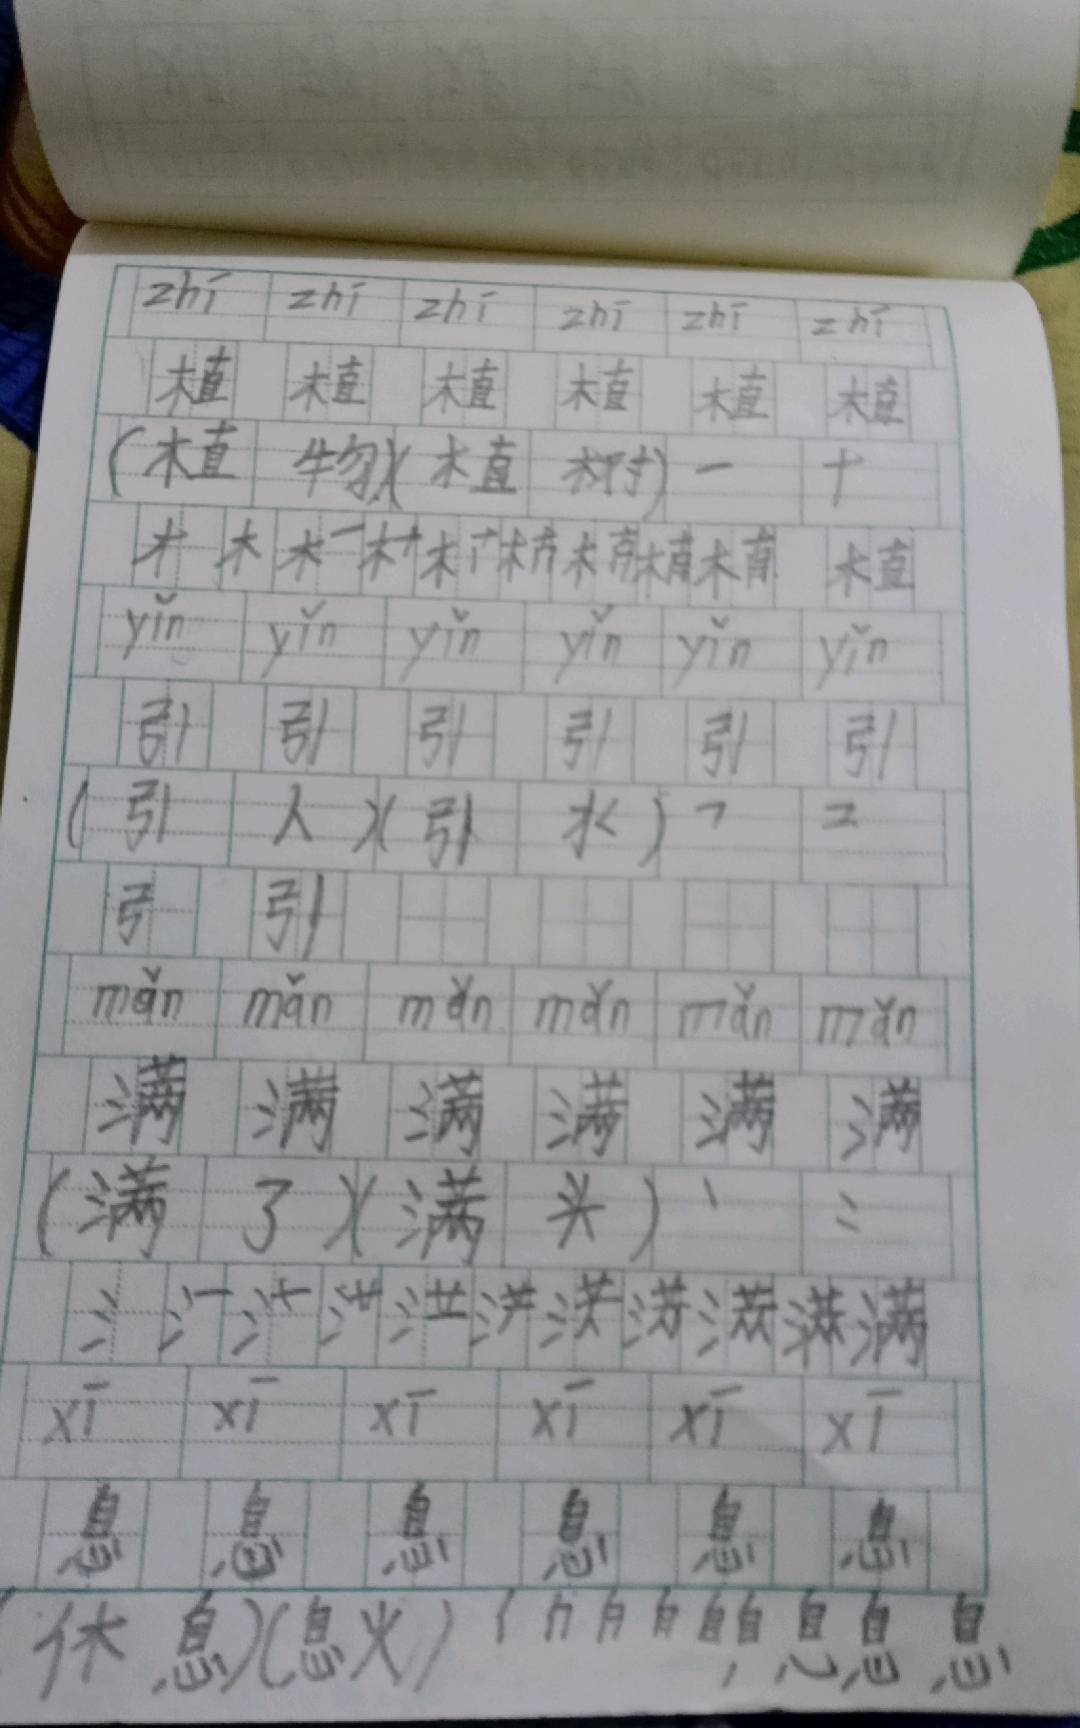 zhí zhí zhí zhí zhí zhí
植 植 植 植 植 植
(植 物)(植 树) 一 十
才 木 木一 木十 植
yǐn yǐn yǐn yǐn yǐn yǐn
引 引 引 引 引 引
(引 人)(引 水) ㇕ コ
弓 引
mǎn mǎn mǎn mǎn mǎn mǎn
满 满 满 满 满 满
(满 了)(满 头) 丶 冫
氵 氵一 氵十 氵艹 满
xī xī xī xī xī xī
息 息 息 息 息 息
(休 息)(息 火) 自 自 息 息